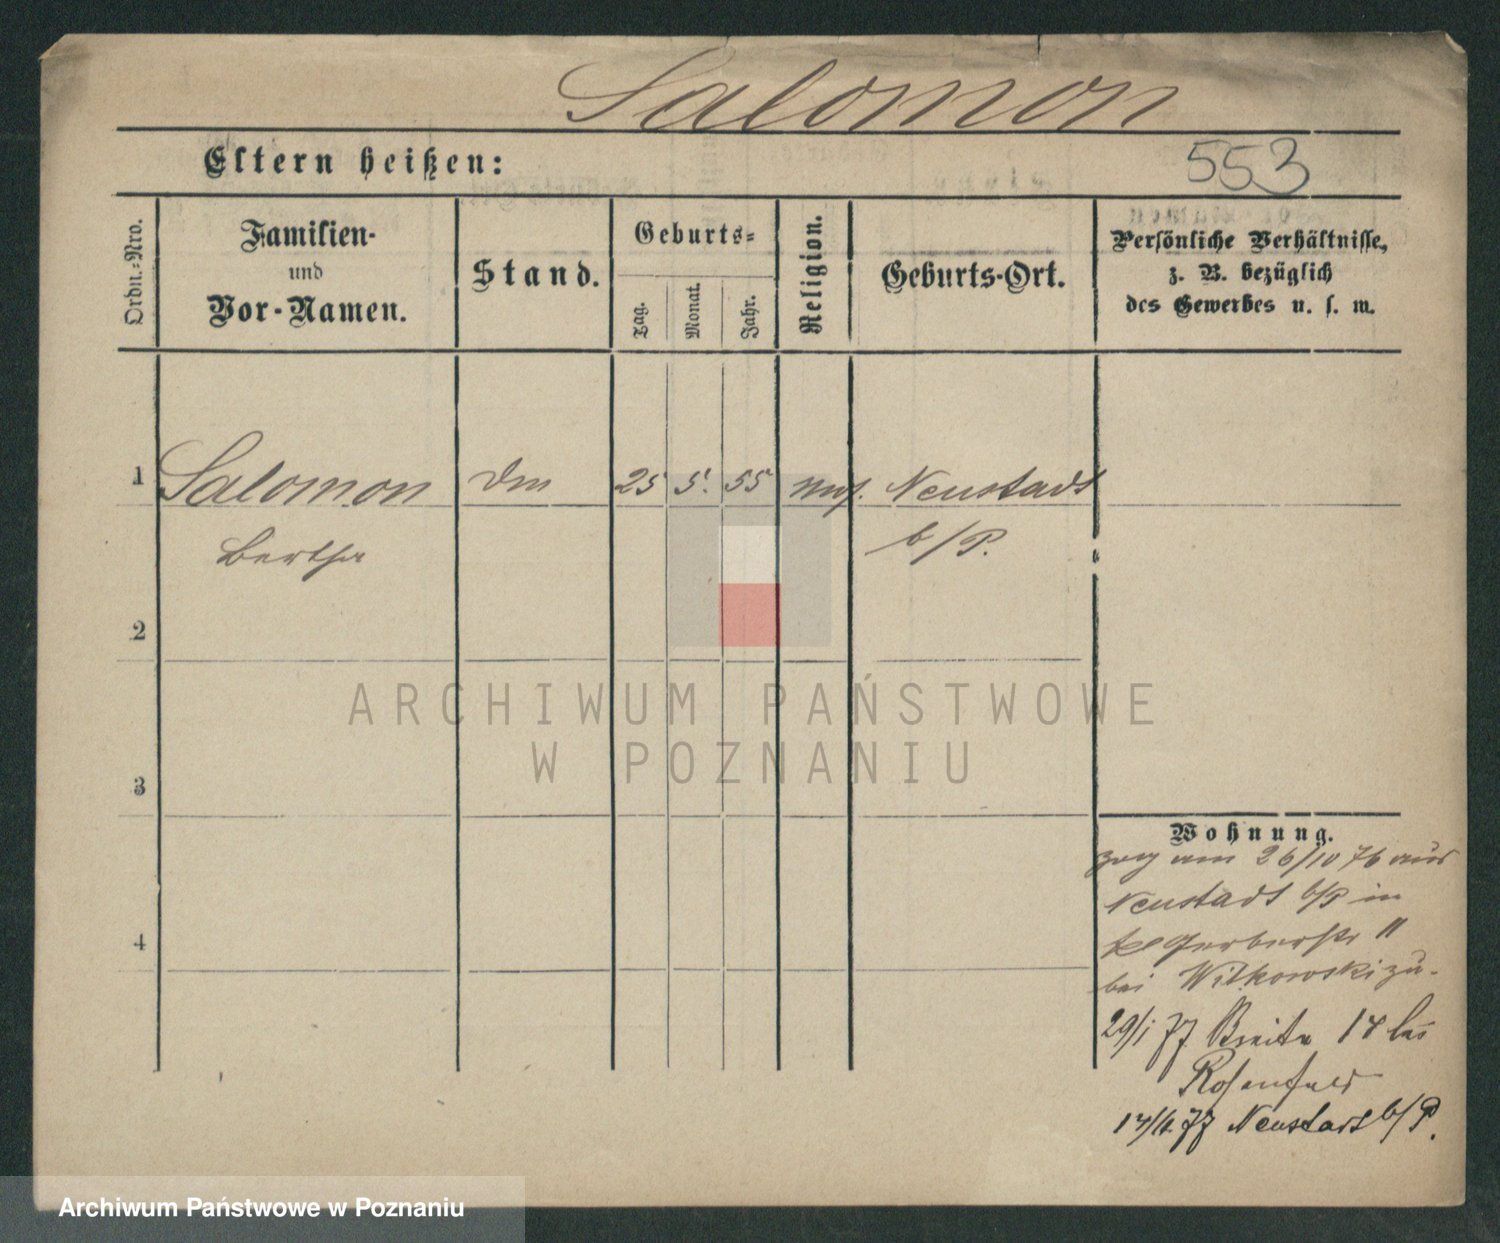 Salomon
Eltern heißen:
553
Ordn.-Nro.
Familien-
und
Vor-Namen.
Stand.
Geburts-
Tag.
Monat.
Jahr.
Religion.
Geburts-Ort.
Persönliche Verhältnisse,
z. B. bezüglich
des Gewerbes u. s. w.
1 Salomon 25 5. 55 mos. Neustadt
Bertha b/P.
2
ARCHIWUM PAŃSTWOWE
W POZNANIU
3
Wohnung.
zog am 26/10 76 aus
Neustadt b/P in
4
Gerberstr 11
bei Witkowski zu.
29/1 77 Breite 14 bei
Rosenfeld
14/4 77 Neustadt b/P.
Archiwum Państwowe w Poznaniu